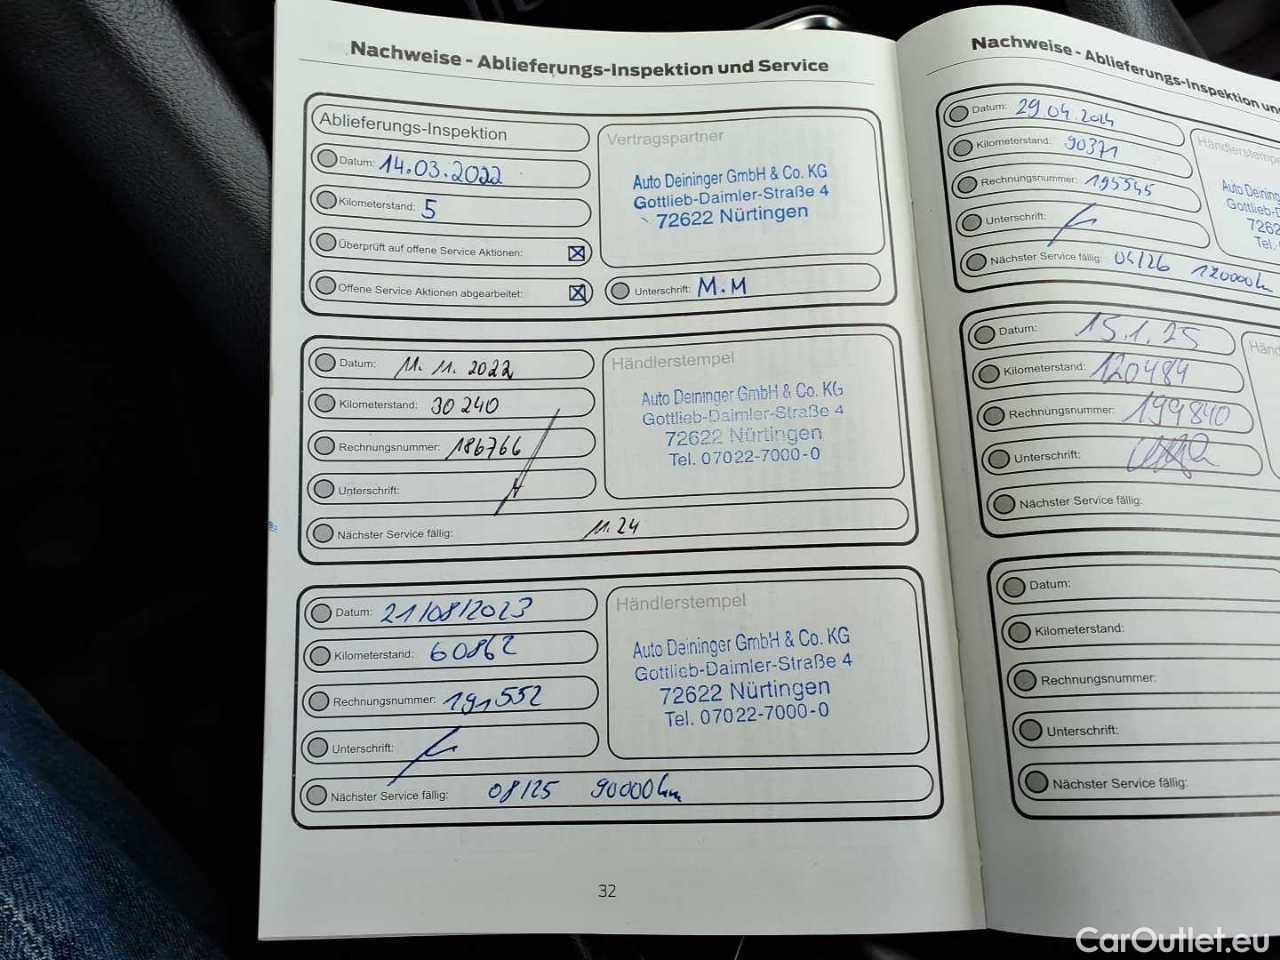 Nachweise - Ablieferungs-Inspektion und Service
Ablieferungs-Inspektion
Datum: 14.03.2022
Kilometerstand: 5
Überprüft auf offene Service Aktionen: ☒
Offene Service Aktionen abgearbeitet: ☒
Vertragspartner
Auto Deininger GmbH & Co. KG
Gottlieb-Daimler-Straße 4
72622 Nürtingen
Unterschrift: M.M
Datum: 11.11.2022
Kilometerstand: 30240
Rechnungsnummer: 186766
Unterschrift:
Nächster Service fällig: 11.24
Händlerstempel
Auto Deininger GmbH & Co. KG
Gottlieb-Daimler-Straße 4
72622 Nürtingen
Tel. 07022-7000-0
Datum: 21/08/2023
Kilometerstand: 60862
Rechnungsnummer: 191552
Unterschrift:
Nächster Service fällig: 08/25 90000km
Händlerstempel
Auto Deininger GmbH & Co. KG
Gottlieb-Daimler-Straße 4
72622 Nürtingen
Tel. 07022-7000-0
32
Nachweise - Ablieferungs-Inspektion un
Datum: 29.04.2024
Kilometerstand: 90371
Rechnungsnummer: 195545
Unterschrift:
Nächster Service fällig: 04/26 120000km
Händlerstempe
Auto Deining
Gottlieb-D
7262
Tel.
Datum: 15.1.25
Kilometerstand: 120484
Rechnungsnummer: 199840
Unterschrift:
Nächster Service fällig:
Händ
Datum:
Kilometerstand:
Rechnungsnummer:
Unterschrift:
Nächster Service fällig:
CarOutlet.eu